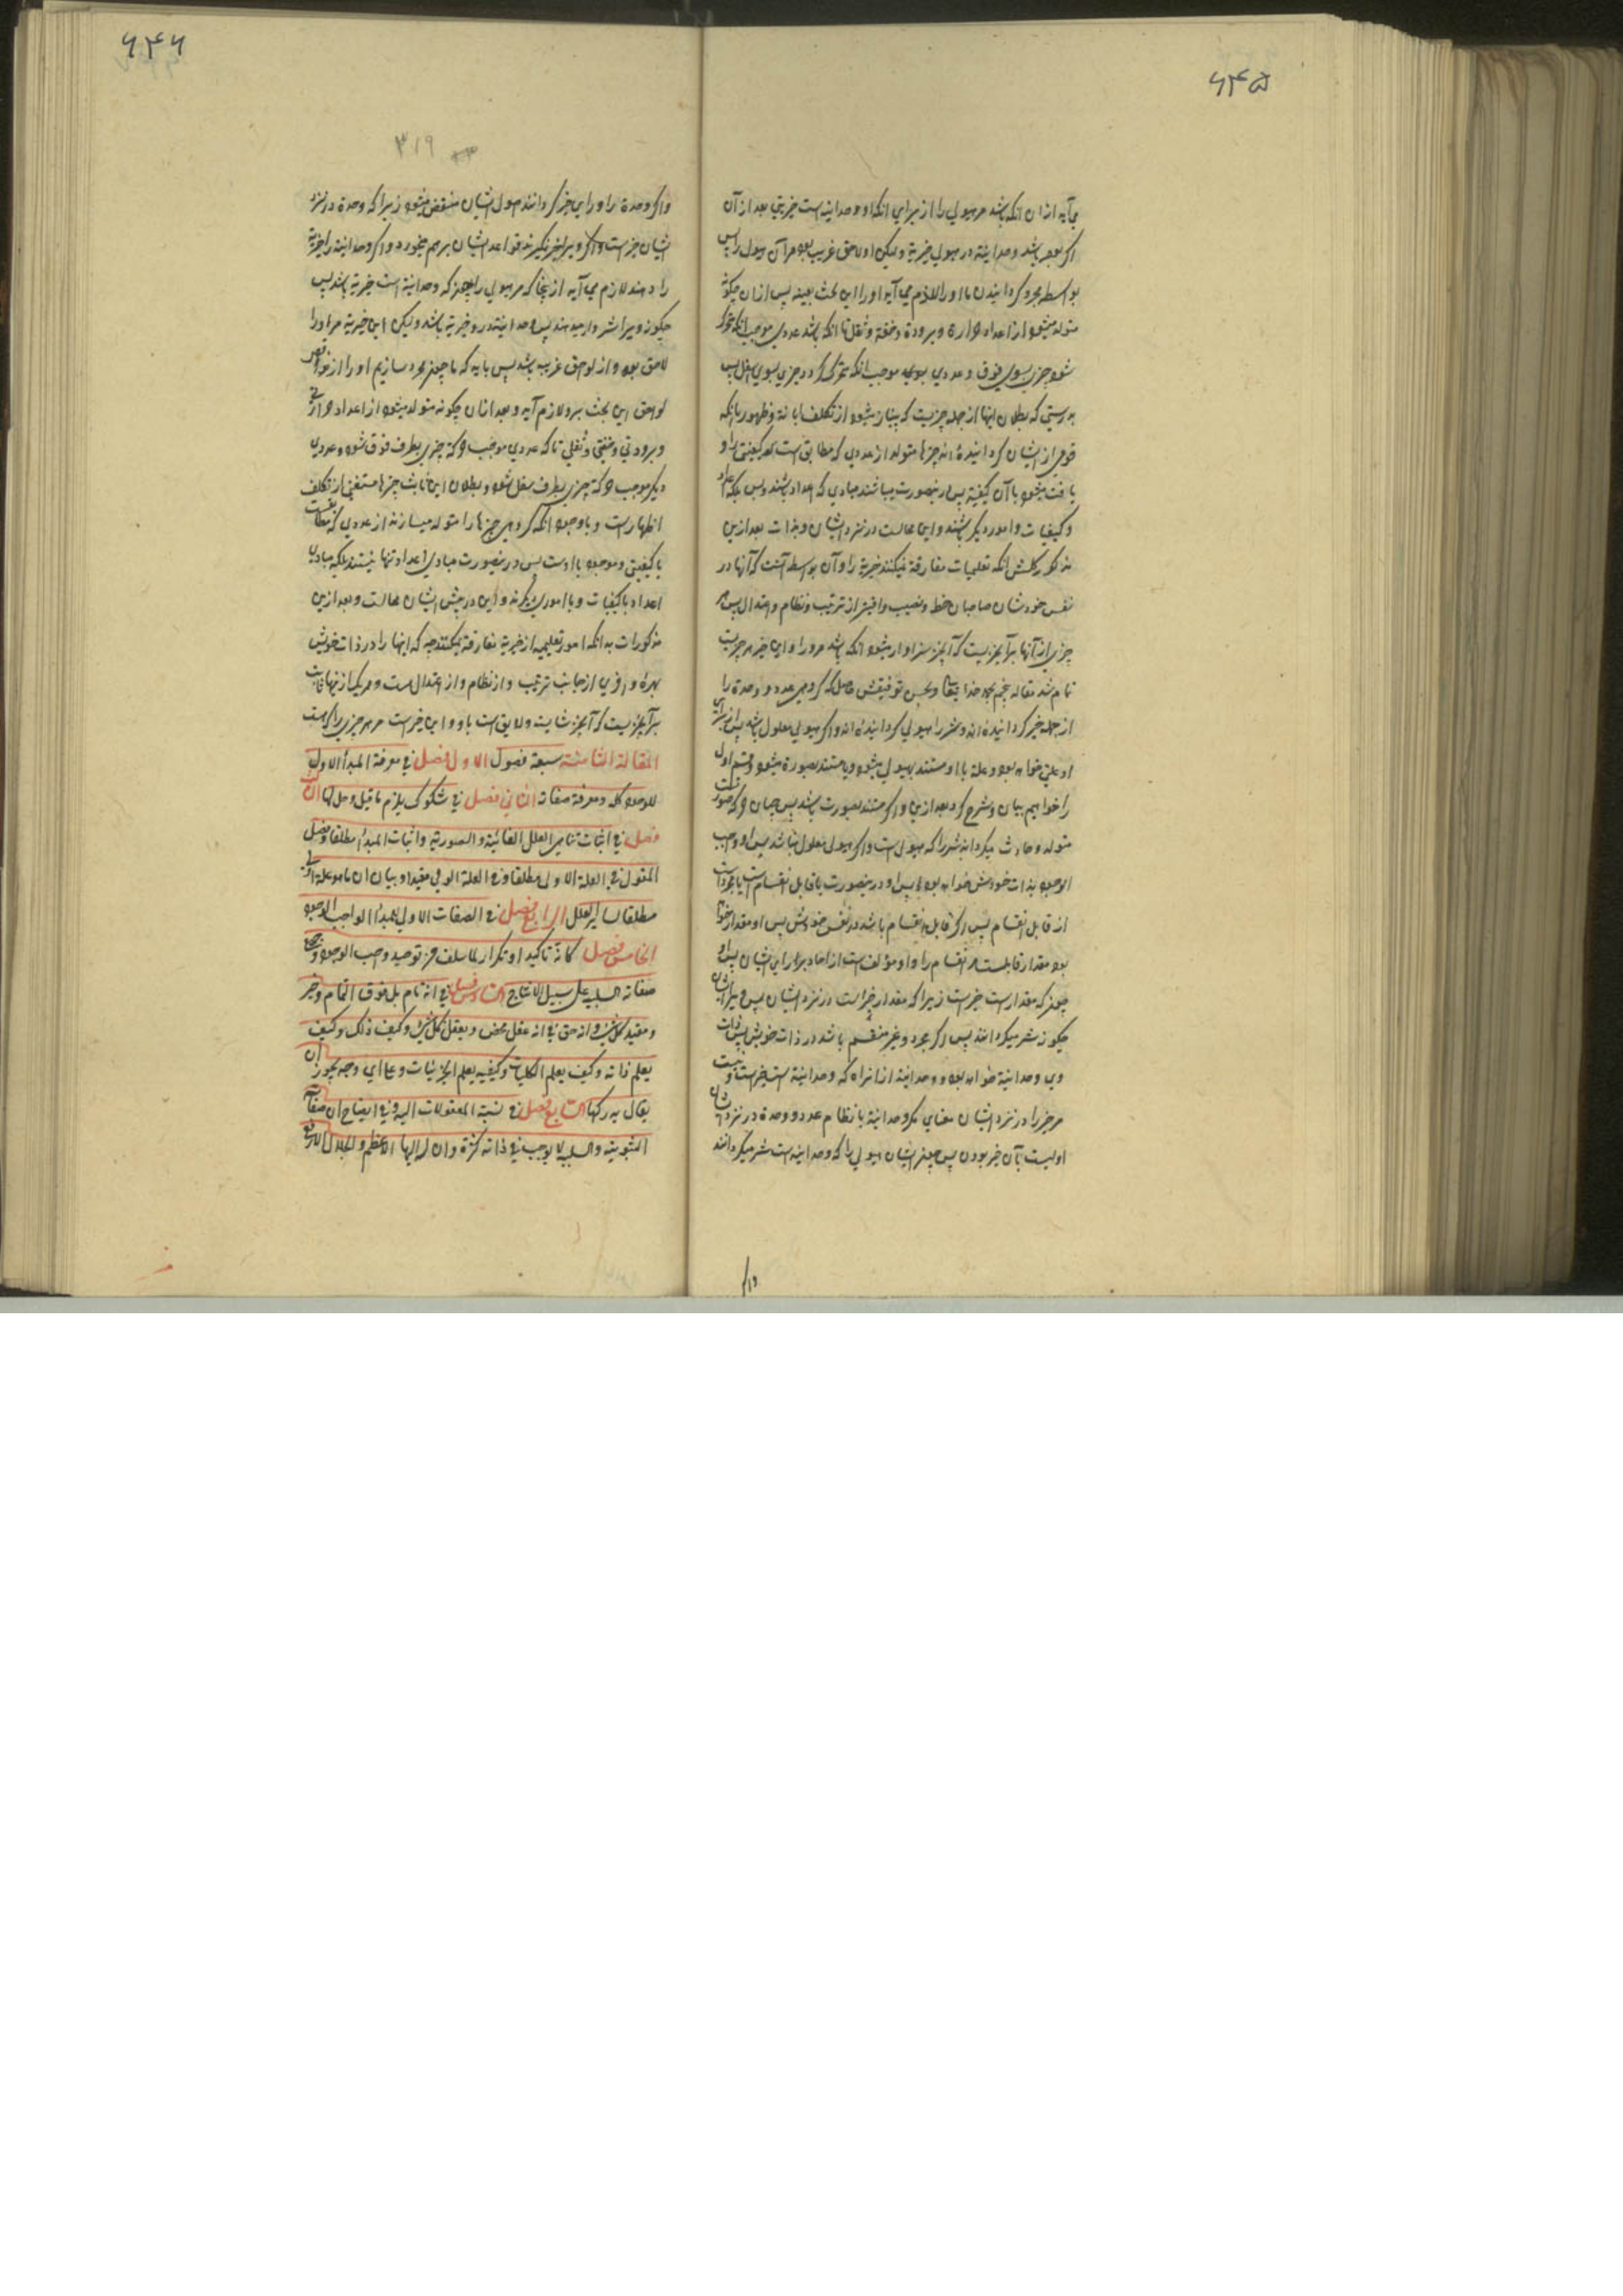 ۶۴۵
می‌آید ازان انکه باشد مر هیولی را از برای انکه او وحدانیه است خیریتی بعد از آن
اکر بوجه باشد وحدانیته در هیولی خیریة ولیکن او لاحق غریب بود مر آن هیولی را پس
بواسطه مجرد کردانیدن ما او را لازم می آید او را این بحث بعینه پس ازان چکونه
متولد میشود از اعداد حرارة و برودة و خفة و ثقل تا انکه باشد عددی موجب انکه متحرک
شود چیزی بسوی فوق و عددی بوجه موجب انکه متحرک کردد چیزی بسوی اسفل پس
بدرستی که بطلان اینها از جمله چیزیست که بی نیاز میشود از تکلف ابانة و ظهور بانکه
قومی از ایشان کردانیده اند چیزها متولد از عددی که مطابق است کیفیتی را و
یافت میشود با آن کیفیة پس درینصورت میباشند مبادی که اعداد باشند و بس بلکه اعداد
و کیفیات و امور دیکر باشند و این محالست در نزد ایشان و بذات بعد ازین
مذکور کلش انکه تعلیمات مفارقة نمیکنند خیریة را و آن بواسطه آنست که آنها در
نفس خودشان صاحبان حظ و نصیب وافیند از ترتیب و نظام و اعتدال پس هر
چیزی از آنها بر آنچیزیست که آنچیز سزاوار میشود انکه باشد مر و را و این خیر هر چیزیست
تمام شد مقاله پنجم بحمد خدایتعالی و بحسن توفیقش حاصل که کروهی عدد و وحدة را
از جمله خیر کردانیده اند و شر را هیولی کردانیده اند و اکر هیولی معلول باشد پس از برای
او علتی خواهد بود و علة با او مستند بهیولی میشود و یا مستند بصورة میشود و قسم اول
را خواهیم بیان و شرح کرد بعد ازین و اکر مستند بصورت باشد پس چسان خیر که صورتست
متولد و حادث میکرداند شر را که هیولی است و اکر هیولی معلول نباشد پس او واجب
الوجود بذات خودش خواهد بود پس او درینصورت یا قابل انقسام است یا مجرد است
از قابل انقسام پس اکر قابل انقسام باشد در نفس خودش پس او مقدار خواهد
بود مقدار قابلست انقسام را و او مؤلف است از احاد برابر رای ایشان پس او
چون که مقدارست خیرست زیرا که مقدار خیر است در نزد ایشان پس ویرا ایشان
چکونه شر میکردانند پس اکر مجرد و غیر منقسم باشد در ذات خویش پس ذات
وی وحدانیة خواهد بود و وحدانیة ازانراه که وحدانیة است خیرست و نیست
مر خیر را در نزد ایشان معنایی مکر وحدانیة با نظام عدد و وحدة در نزد ایشان
اولیست بآن خیر بودن پس چون ایشان هیولی را که وحدانیه است شر میکردانند
۶۴۶
۳۱۹
و اکر وحدة را ورای خیر کردانند اصول ایشان منتقض میشود زیرا که وحدة در نزد
ایشان خیر است و اکر ویرا خیر نکیرند قواعد ایشان برهم میخورد و اکر وحدانیة را خیریة
را دهند لازم می آید ازینجا که مر هیولی را بچیز که وحدانیة است خیریة باشد پس
چکونه ویرا شر دارمیدهند پس وحدانیته در و خیریة باشد ولیکن این خیریة مر او را
لاحق بود و از لواحق غریب باشد پس باید که ما چون مجرد سازیم او را از غواص
لواحق این بحث برو لازم آید و بعد ازان چکونه متولد میشود از اعداد حرارتی
و برودتی و خفتی و ثقلی تا که عددی موجب حرکة چیزی بطرف فوق شود و عددی
دیکر موجب حرکة چیزی بطرف سفل شود و بطلان این مباحث چیزها مستغنی از تکلف
اظهارست و باوجود انکه کروهی چیزها را متولد میسازند از عددی که مطابقست
با کیفیتی و موجود با اوست پس درینصورت مبادی اعداد تنها نیستند بلکه مبادی
اعداد با کیفیات و با اموری دیکرند و این در پیش ایشان محالست و بعد ازین
مذکورات بدانکه امور تعلیمیه از خیریة مفارقة نمیکنند چه که اینها را در ذات خویش
بهرهٔ وافری از جانب ترتیب و از نظام و از اعتدال هست و هر یک ازینها ثابت
بر آنچیزیست که آنچیز شایسته و لایق است باو و این خیرست مر هر چیزی را که هست
المقالة الثامنة سبعة فصول الاول فصل فی معرفة المبدأ الاول
للوجود کله و معرفة صفاته الثانی فصل فی شکوک یلزم ما قیل و حلها الثالث
فصل فی اثبات تناهی العلل الغائیة و الصوریة و اثبات المبدأ مطلقا و فصل
القول فی العلة الاولی مطلقا و فی العلة الاولی مقیدا و بیان ان ما هو علة اولی
مطلقا لسایر العلل الرابع فصل فی الصفات الاولی للمبدأ الواجب الوجود
الخامس فصل کانه تاکید او تکرار لما سلف من توحید واجب الوجود و جمیع
صفاته السلبیه علی سبیل الانتاج السادس فصل فی انه تام بل فوق التمام و خیر
و مفید کل شیء و انه حق فی انه عقل محض و یعقل کل شیء و کیف ذلک و کیف
یعلم ذاته و کیف یعلم الکلیات و کیفیه یعلم الجزئیات و علی ای وجه یجوز ان
یقال یدرکها السابع فصل فی نسبة المعقولات الیه و فی ایضاح ان صفاته
الثبوتیة و السلبیة لا یوجب فی ذاته کثرة و ان له البهاء الاعظم و الجلال الارفع